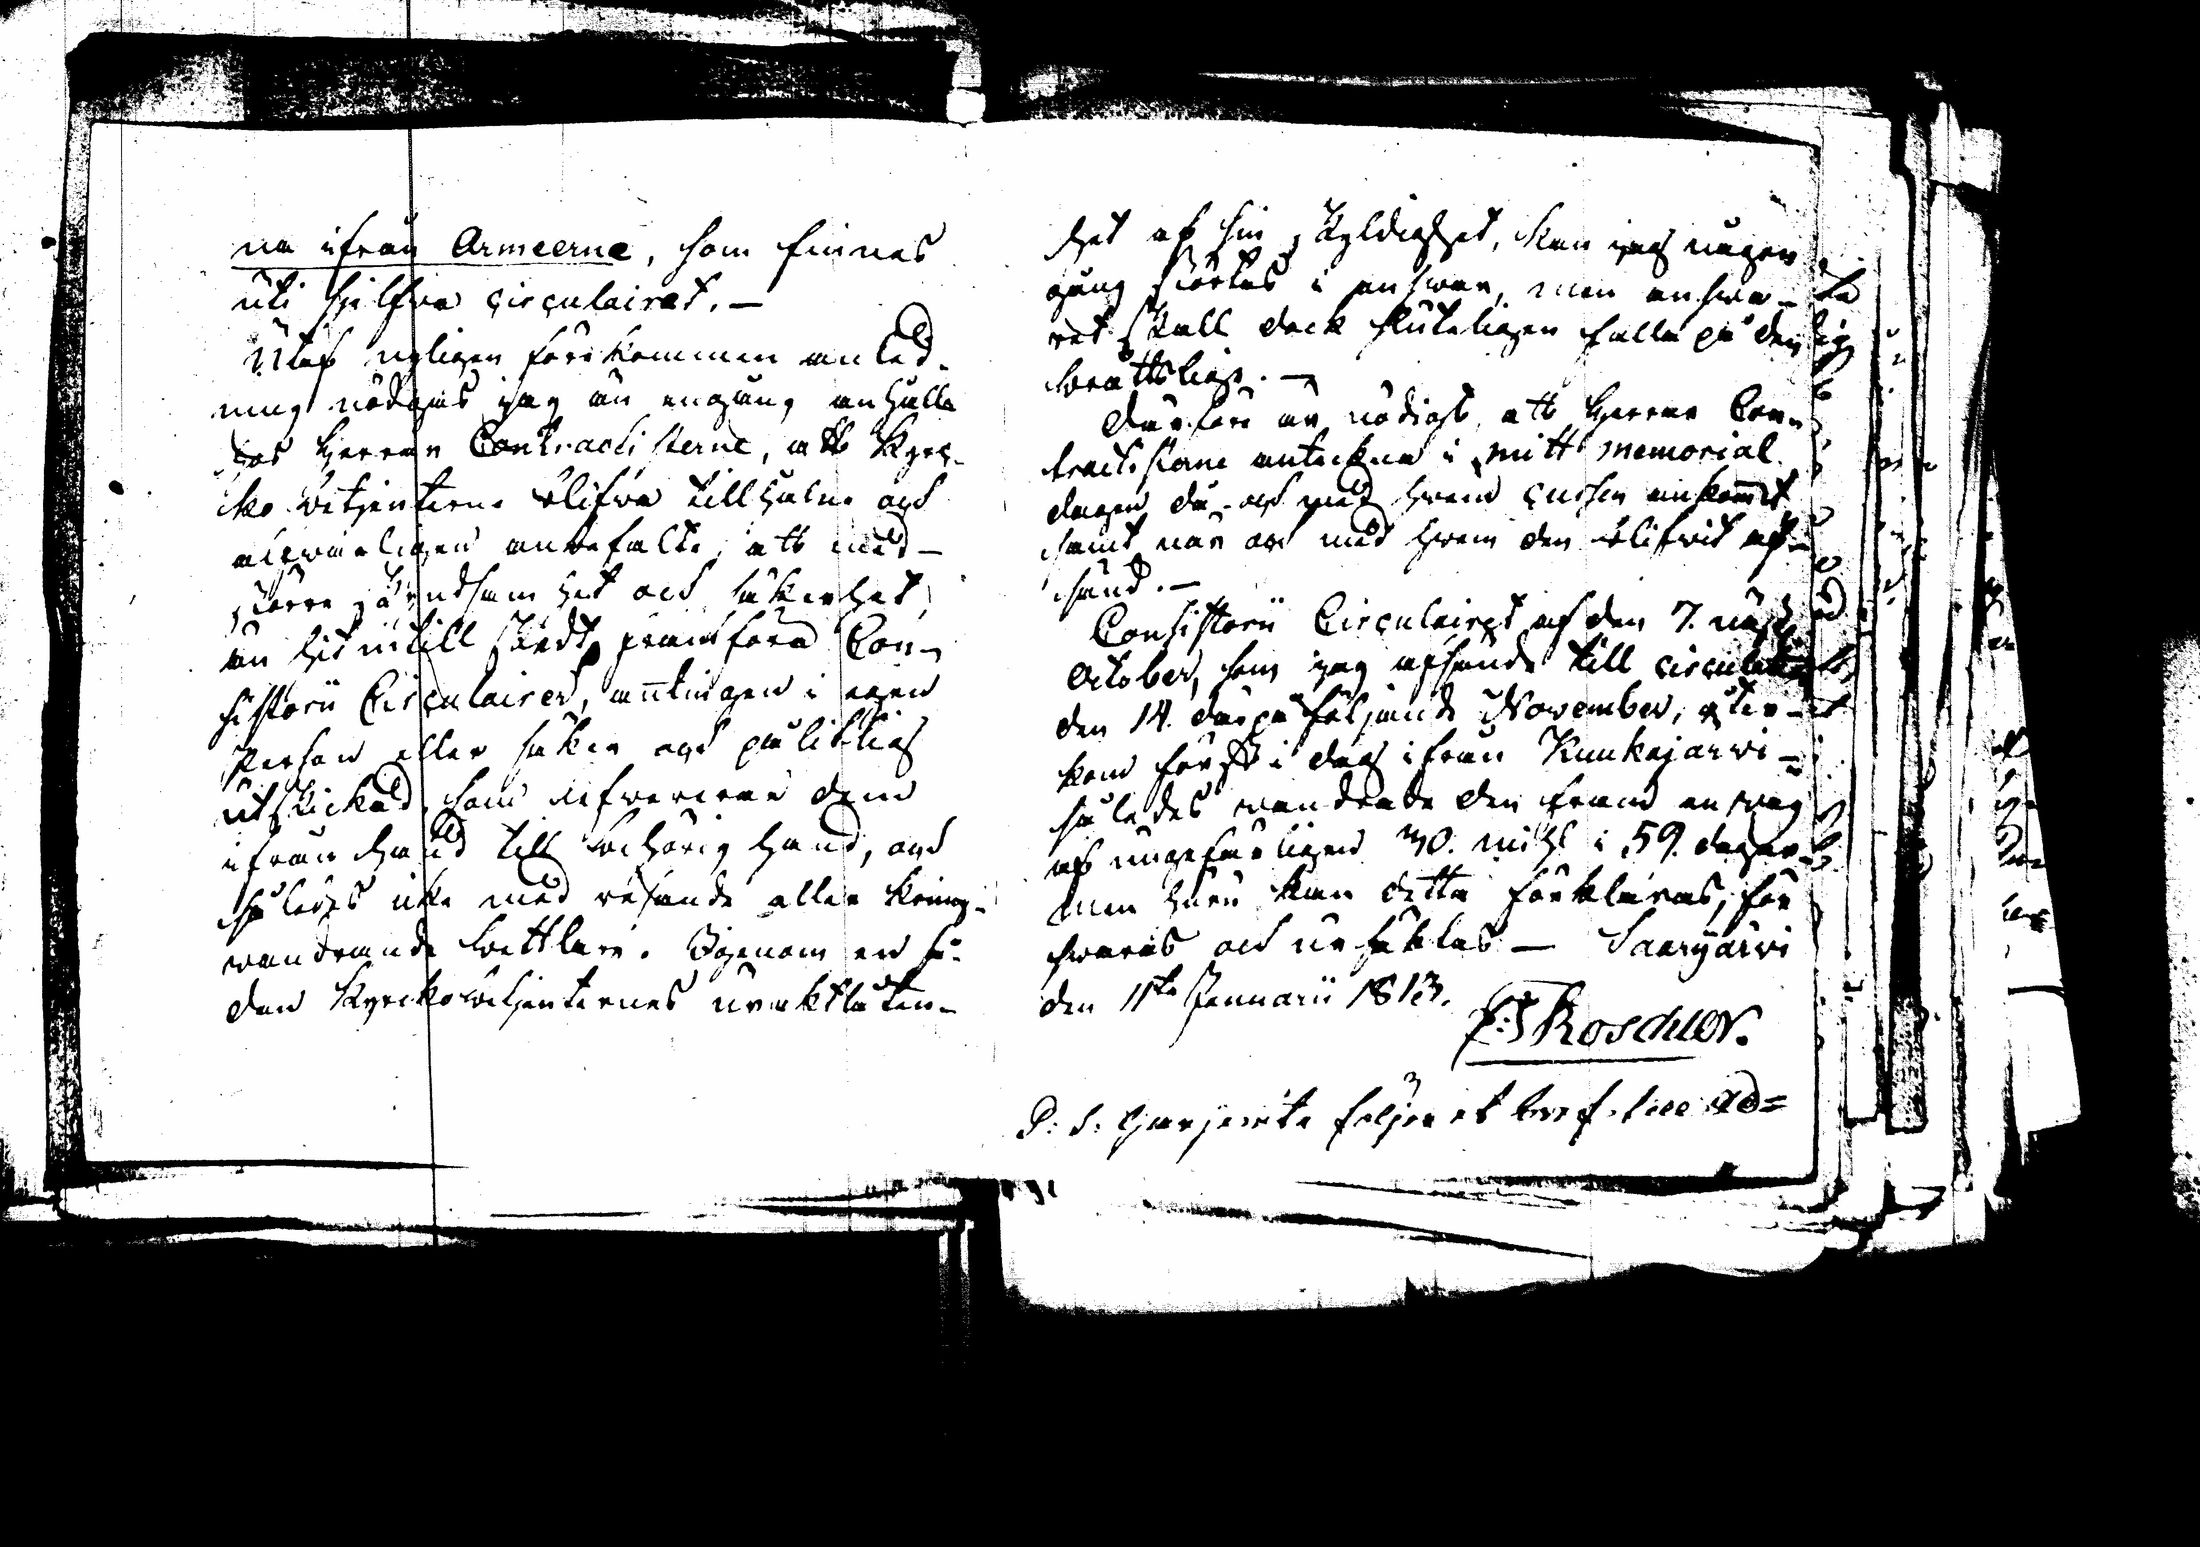 na ifrån Armeerne, som finnes
uti sjelfva circulairet. —
Utaf nyligen förekommen anled-
ning nödgas jag än engång anhålla
hos Herrar Contractisterne, att Kyrc-
ko betjenterne blifva tillhålne och
alfvarligen anbefalte, att med
större görandsamhet och säkerhet,
än hitintill skedt, framföra Con-
sistorii Circulairer, antingen i egen
Person eller säker och pålitlig
utskickad, som lefvererar dem
ifrån hand till behörig hand, och
således icke med resande eller kring-
vandrande bettlare. Igenom en så-
dan Kyrckobetjenternes uraktlåten-
het af sin skyldighet, kan jag någon
gång störtas i answar, men answa-
ret skall dock sluteligen falla på den
brottslige. —
Därföre är nödigt, att Herrar Con-
tractisterne anteckna i mitt memorial
dagen då och med hvem cursen ankommit
samt när och med hvem den blifvit af-
sänd. —
Consistorii Circulairet af den 7. näst.
October, som jag afsände till
den 14. därpå följande November, åter-
kom först i dag ifrån Kuukajärvi —
således vandrade den fram en väg
af ungefärligen 30. mihl i 59. dagar
men huru kan detta förklaras, för
svaras och ursäktas — Saarijärvi
den 11te Januarii 1813.
Roschier.
P: S: Härjemte följer et bref till Ad=